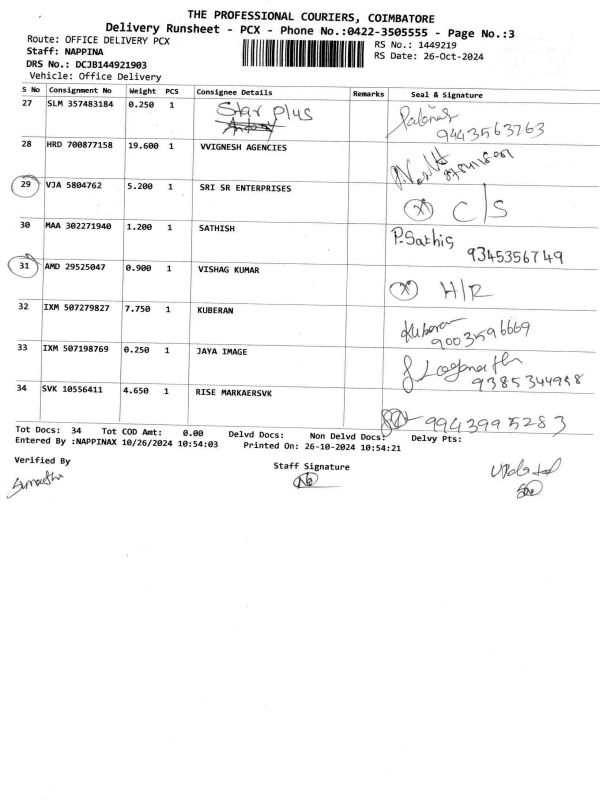 THE PROFESSIONAL COURIERS, COIMBATORE
Delivery Runsheet - PCX - Phone No.:0422-3505555 - Page No.:3
Route: OFFICE DELIVERY PCX
RS No.: 1449219
Staff: NAPPINA
RS Date: 26-Oct-2024
DRS No.: DCJB144921903
Vehicle: Office Delivery
S No Consignment No Weight PCS Consignee Details Remarks Seal & Signature
27 SLM 357483184 0.250 1 Star plus
9443563763
28 HRD 700877158 19.600 1 VVIGNESH AGENCIES
29 VJA 5804762 5.200 1 SRI SR ENTERPRISES (X) C/S
30 MAA 302271940 1.200 1 SATHISH P.Sathis
9345356749
31 AMD 29525047 0.900 1 VISHAG KUMAR (X) H/R
32 IXM 507279827 7.750 1 KUBERAN Kuberan
9003596669
33 IXM 507198769 0.250 1 JAYA IMAGE
9385344958
34 SVK 10556411 4.650 1 RISE MARKAERSVK
9943995283
Tot Docs: 34 Tot COD Amt: 0.00 Delvd Docs: Non Delvd Docs: Delvy Pts:
Entered By :NAPPINAX 10/26/2024 10:54:03 Printed On: 26-10-2024 10:54:21
Verified By Staff Signature
Updated